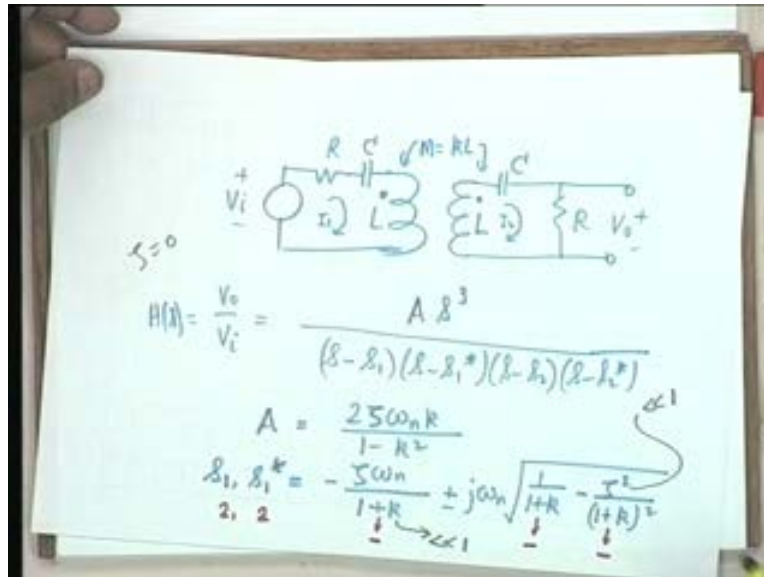 R C M = kL C
+ Vi - I₁ L L I₂ R V₀ + -
ζ=0
H(s) = V₀/Vi = A s³ / (s-s₁)(s-s₁*)(s-s₂)(s-s₂*)
<<1
A = 2ζωₙk / 1-k²
s₁, s₁* = - ζωₙ/1+k ± jωₙ √(1/1+k - ζ²/(1+k)²)
2, 2 - <<1 - -